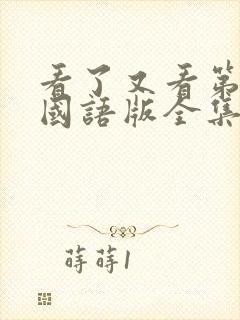 看了又看第
國語版全集
蒔蒔1